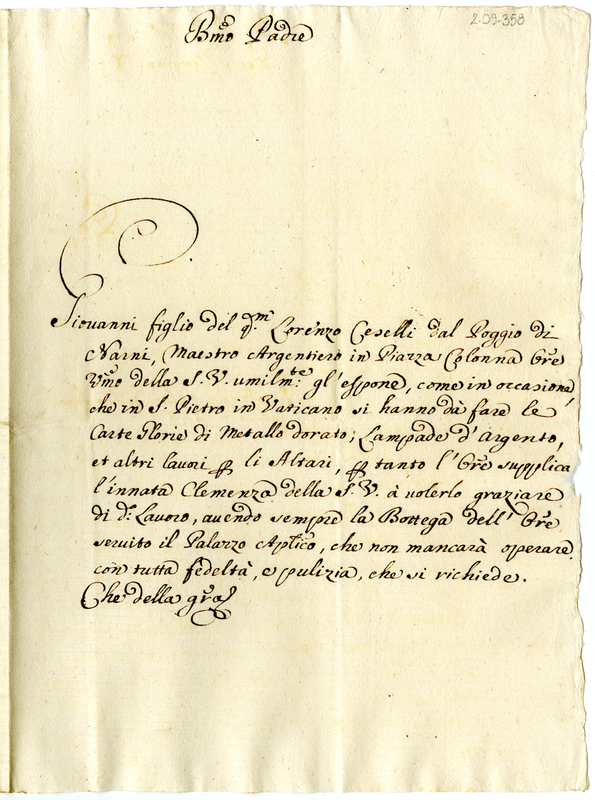 2-09-358
Bmo Padre
Giovanni figlio del qm Lorenzo Ceselli dal Poggio di
Narni, Maestro Argentiero in Piazza Colonna Ore
Vmo della S. V. umilmte gl'espone, come in occasione
che in S. Pietro in Vaticano si hanno dà fare le
Carte Glorie di Metallo dorato; Lampade d'Argento,
et altri lavori p li Altari, p tanto l'Ore supplica
l'innata Clemenza della S. V. à volerlo graziare
di do Lavoro, avendo sempre la Bottega dell'Ore
servito il Palazzo Aplico, che non mancarà operare
con tutta fedeltà, e pulizia, che si richiede.
Che della gra